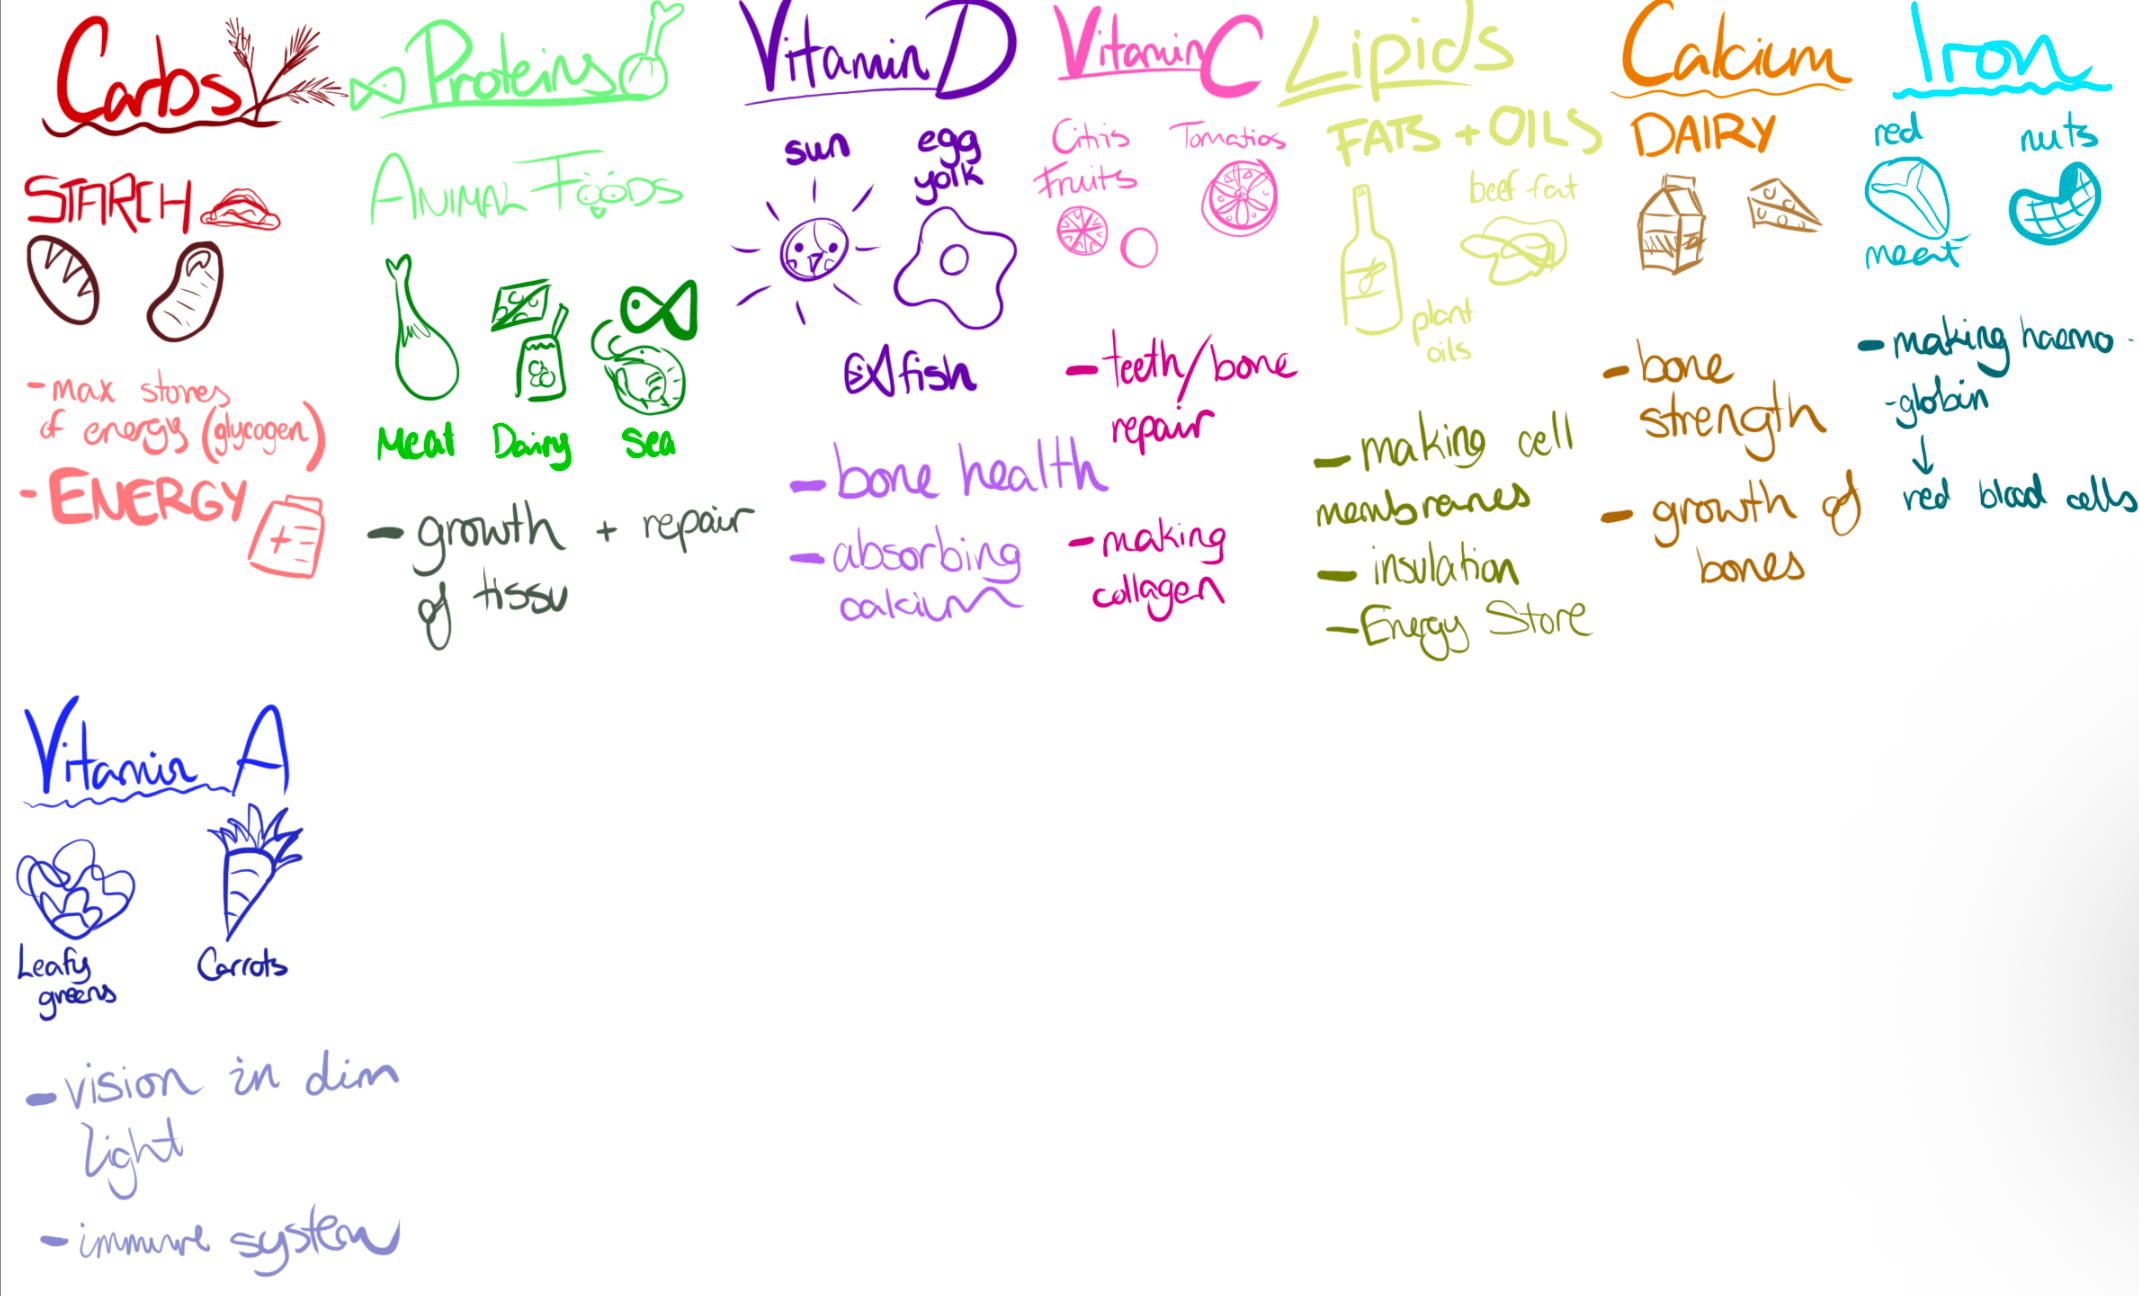 Carbs
STARCH
-max stores
of energy (glycogen)
- ENERGY
Proteins
ANIMAL FOODS
Meat Dairy Sea
- growth + repair
of tissu
Vitamin D
sun egg
yolk
fish
- bone health
- absorbing
calcium
Vitamin C
Citris Tomatios
Fruits
- teeth/bone
repair
- making
collagen
Lipids
FATS + OILS
beef fat
plant
oils
- making cell
membranes
- insulation
- Energy Store
Calcium
DAIRY
- bone
strength
- growth of
bones
Iron
red nuts
meat
- making haemo-
-globin
↓
red blood cells
Vitamin A
Leafy Carrots
greens
- vision in dim
light
- immune system